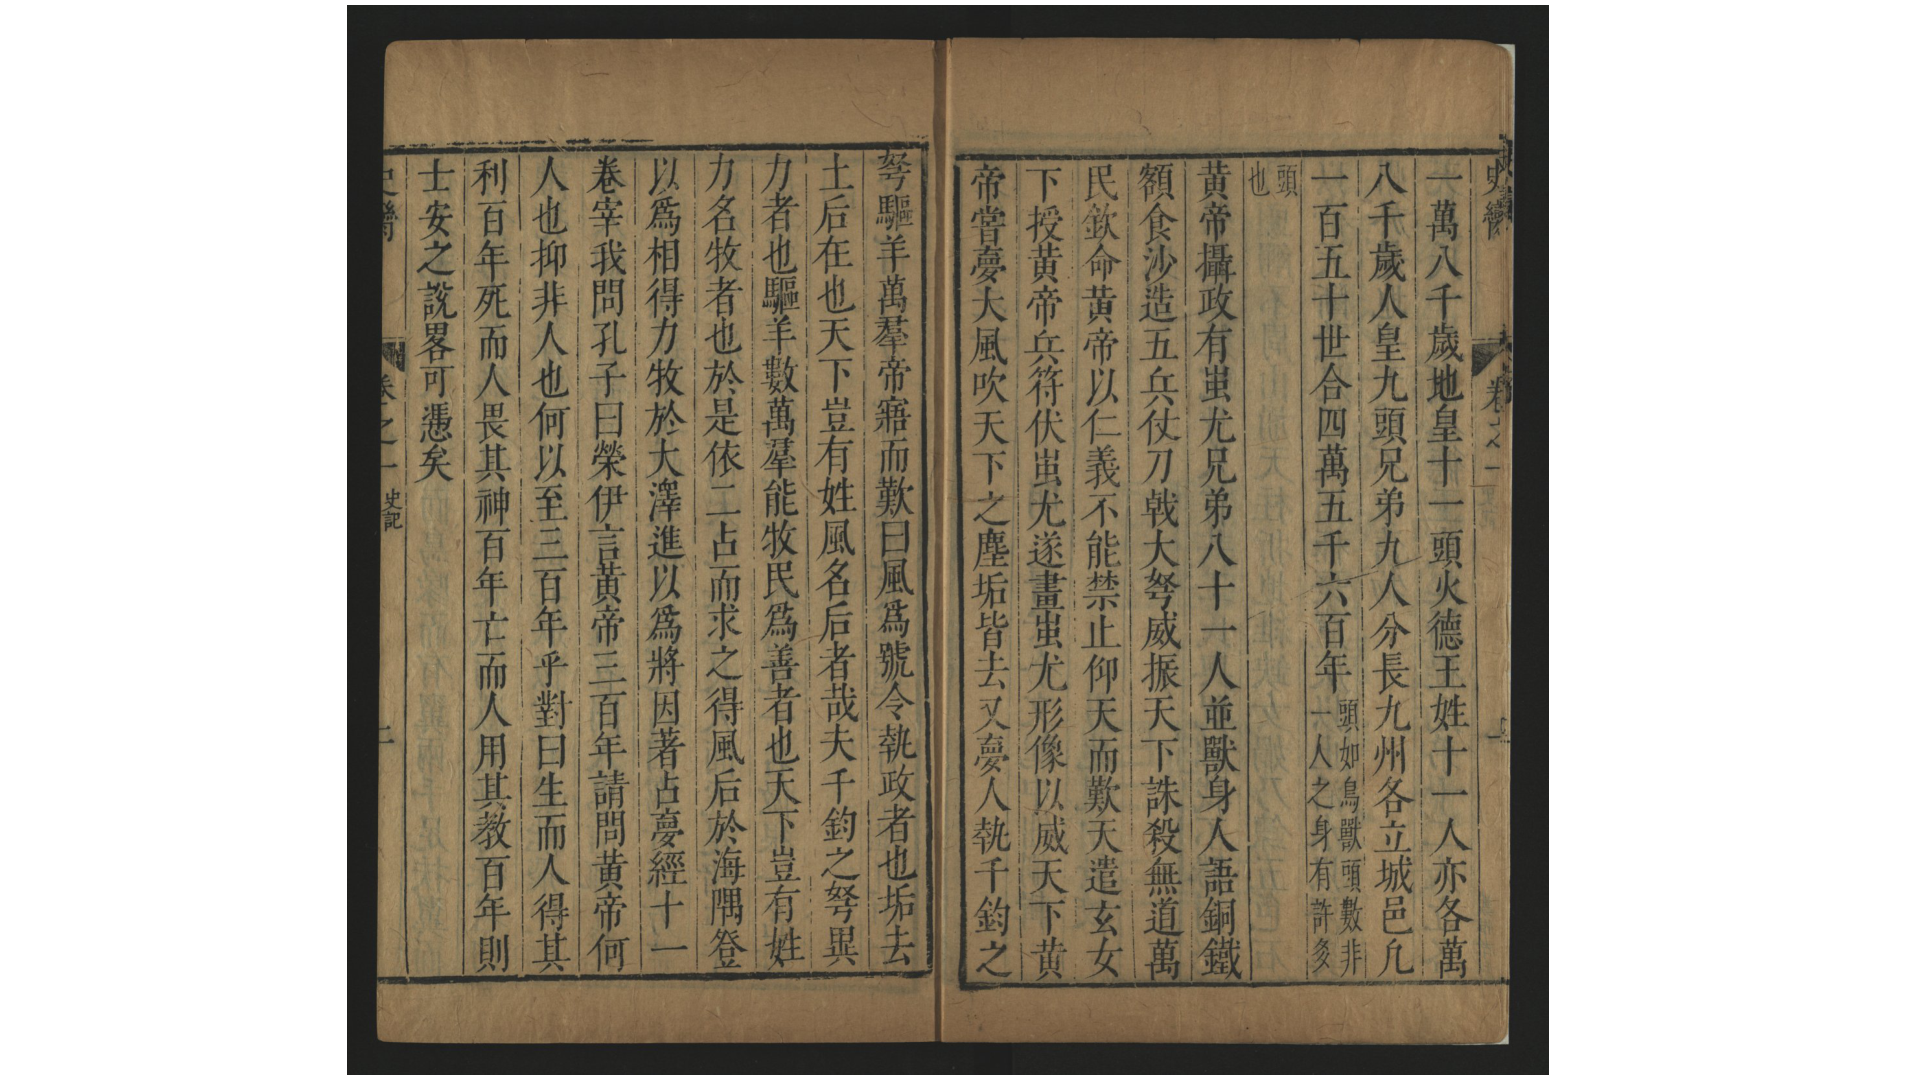 史臠 卷之一
一萬八千歲地皇十一頭火德王姓十一人亦各萬
八千歲人皇九頭兄弟九人分長九州各立城邑凢
一百五十世合四萬五千六百年頭如鳥獸頭數非一人之身有許多
頭也
黄帝攝政有蚩尤兄弟八十一人並獸身人語銅鐵
額食沙造五兵仗刀戟大弩威振天下誅殺無道萬
民欽命黄帝以仁義不能禁止仰天而歎天遣玄女
下授黄帝兵符伏蚩尤遂畫蚩尤形像以威天下黄
帝嘗夢大風吹天下之塵垢皆去又夢人執千鈞之
弩驅羊萬羣帝寤而歎曰風爲號令執政者也垢去
土后在也天下豈有姓風名后者哉夫千鈞之弩異
力者也驅羊數萬羣能牧民爲善者也天下豈有姓
力名牧者也於是依二占而求之得風后於海隅登
以爲相得力牧於大澤進以爲將因著占夢經十一
卷宰我問孔子曰榮伊言黄帝三百年請問黄帝何
人也抑非人也何以至三百年乎對曰生而人得其
利百年死而人畏其神百年亡而人用其教百年則
士安之說畧可憑矣
史臠 卷之一 史記 二